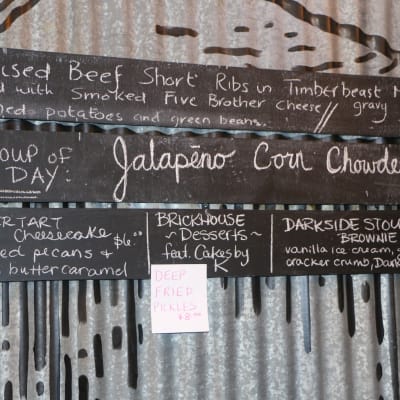 ised Beef Short Ribs in Timberbeast
d with Smoked Five Brother cheese // gravy
ed potatoes and green beans.
oup of Jalapēno Corn Chowde
DAY:
ERTART
Cheesecake $6.00
ed pecans &
butter caramel
BRICKHOUSE
~ Desserts ~
feat. Cakes by
K
DARKSIDE STOU
BROWNIE
vanilla ice cream,
cracker crumb, Dark
DEEP
FRIED
PICKLES
$8.00